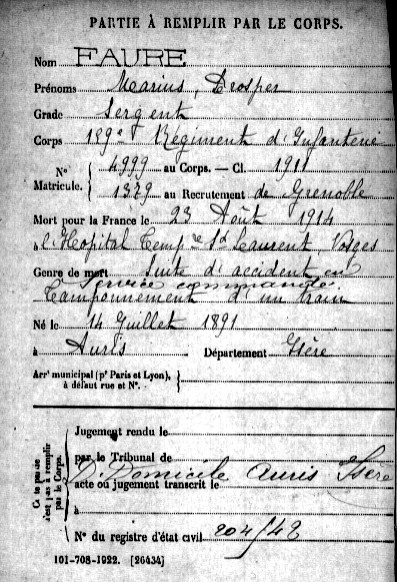 PARTIE À REMPLIR PAR LE CORPS.
Nom FAURE
Prénoms Marius, Prosper
Grade Sergent
Corps 159e Régiment d'Infanterie
N° Matricule. { 4999 au Corps. — Cl. 1911
1379 au Recrutement de Grenoble
Mort pour la France le 23 Août 1914
à l'Hopital Temp re St Laurent, Vosges
Genre de mort Suite d'accident en
Service commandé.
Tamponnement d'un train
Né le 14 Juillet 1891
à Auris Département Isère
Arrt municipal (pr Paris et Lyon), à défaut rue et N°. }
Cette partie n'est pas à remplir par le Corps.
Jugement rendu le
par le Tribunal de
D. Domicile Auris Isère
acte ou jugement transcrit le
à
N° du registre d'état civil 204/42
101-708-1922. [26434]